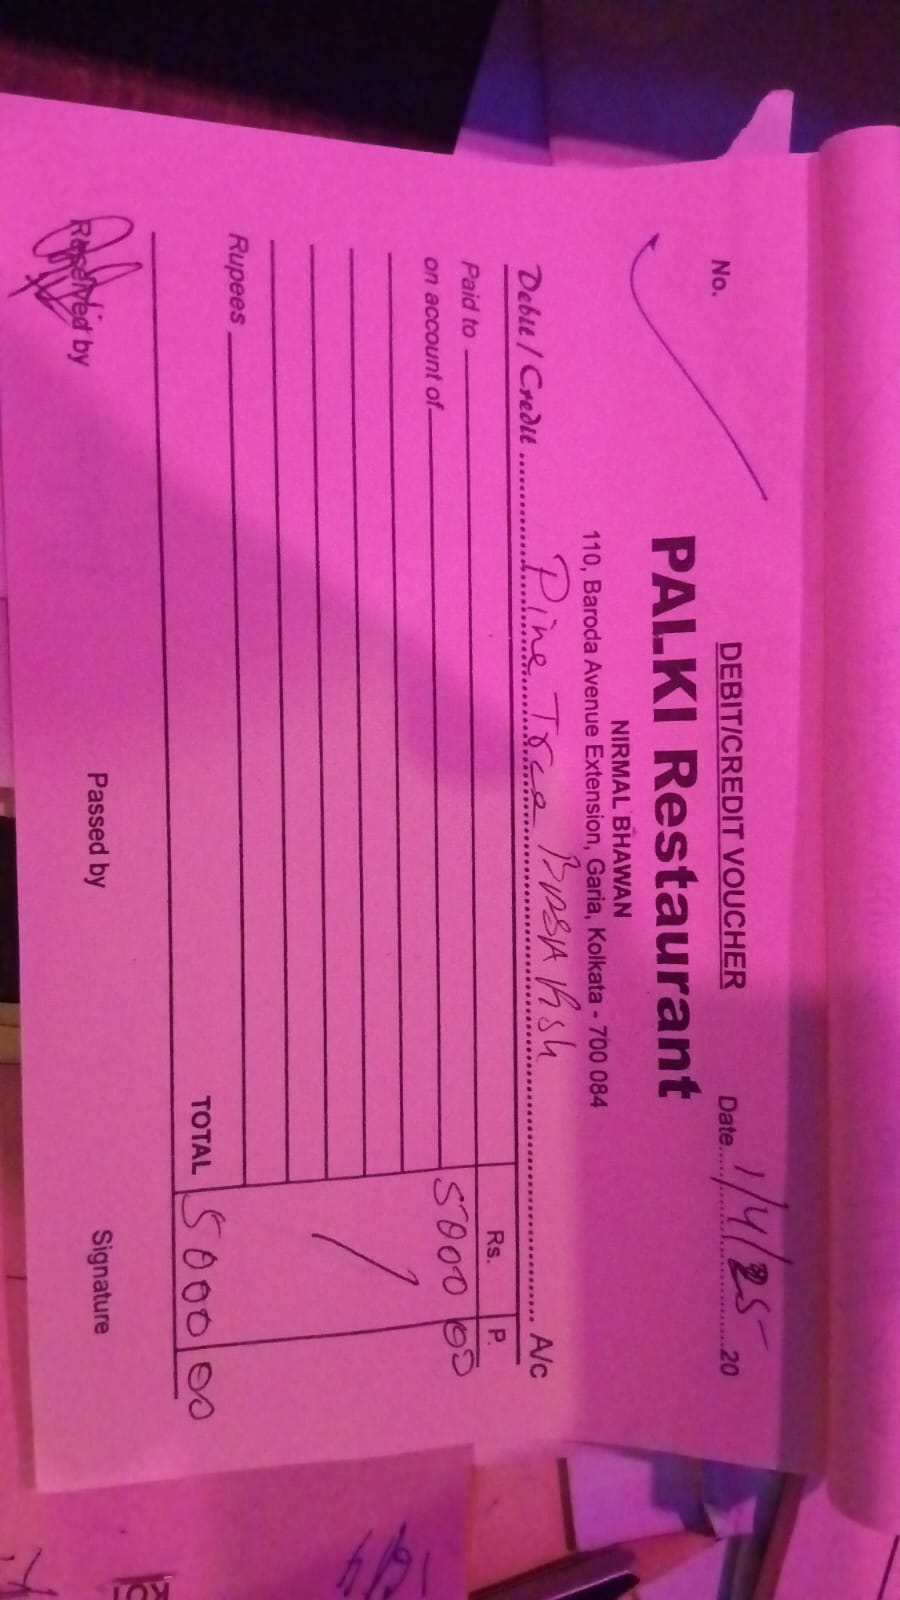 DEBIT/CREDIT VOUCHER
No.
Date 1/4/25 20
PALKI Restaurant
NIRMAL BHAWAN
110, Baroda Avenue Extension, Garia, Kolkata - 700 084
Debit / Credit Pine Tree A/c
Rs. P.
Paid to
on account of 5000 00
Rupees
TOTAL 5000 00
Received by Passed by Signature